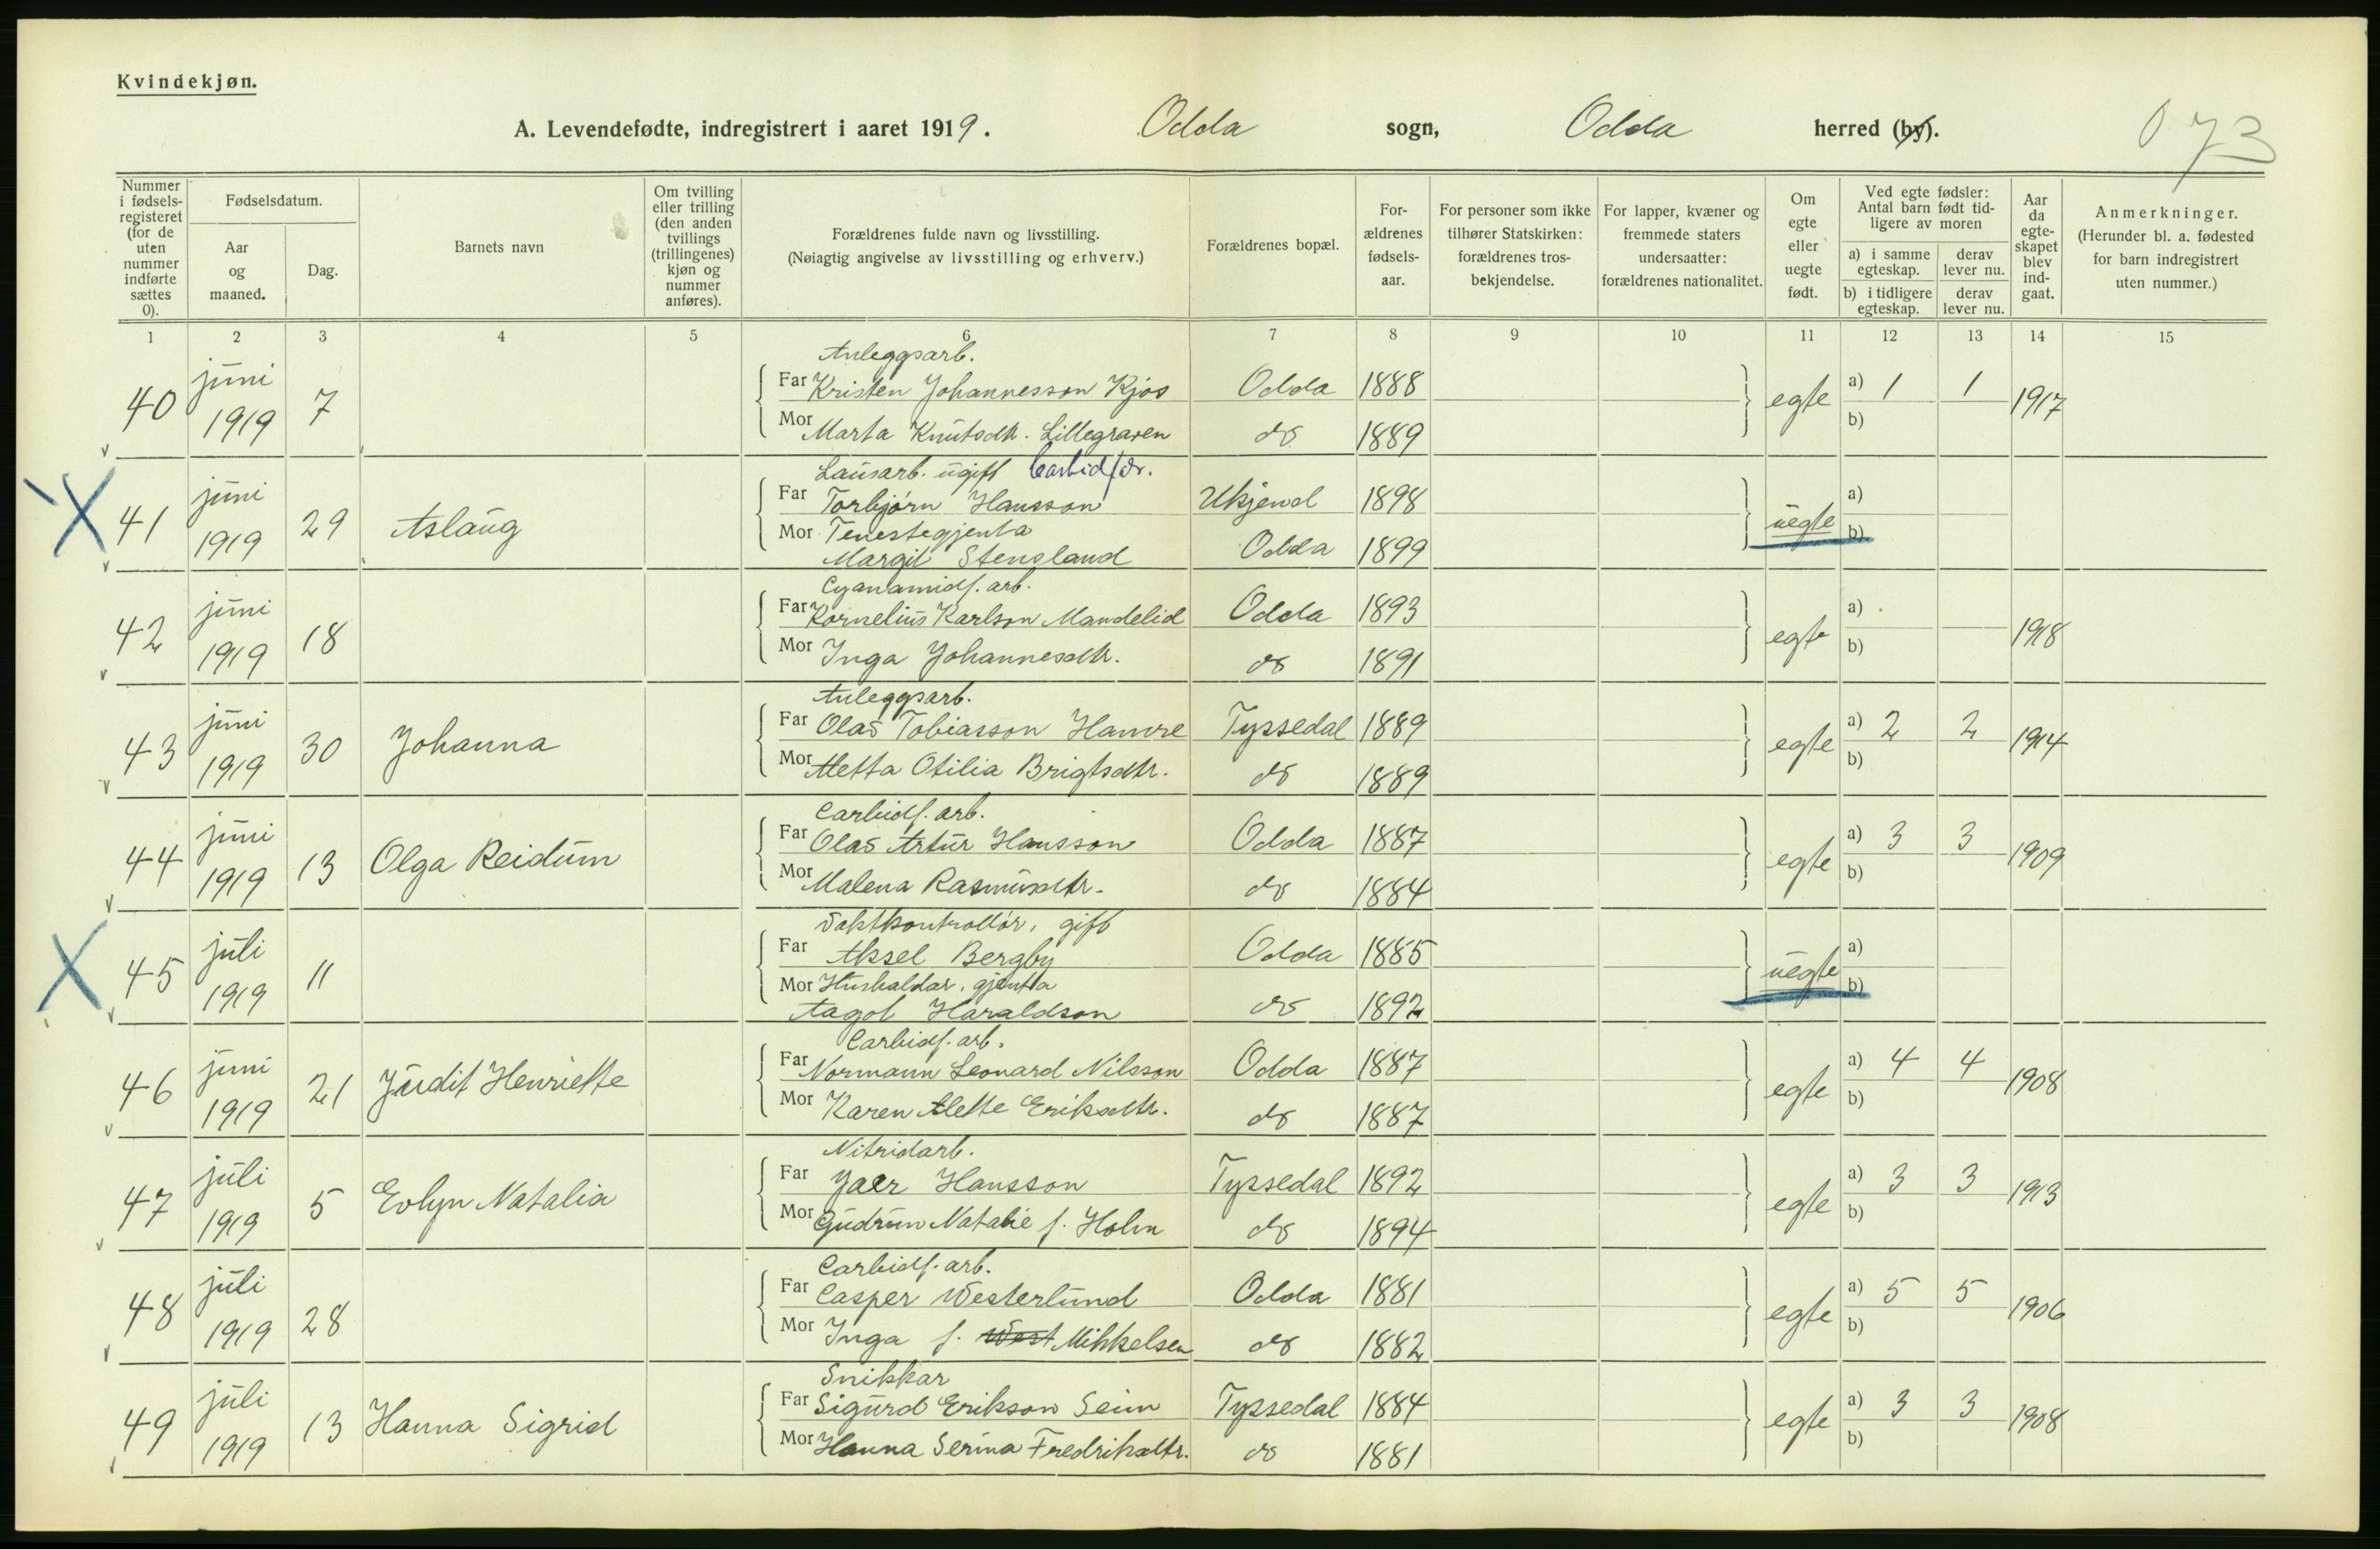 Kvindekjøn.
A. Levendefødte, indregistrert i aaret 1919. Odda sogn, Odda herred (by).
073
Nummer i fødsels-registeret (for de uten nummer indførte sættes 0).
Fødselsdatum.
Aar og maaned.
Dag.
Barnets navn
Om tvilling eller trilling (den anden tvillings (trillingenes) kjøn og nummer anføres).
Forældrenes fulde navn og livsstilling.
(Nøiagtig angivelse av livsstilling og erhverv.)
Forældrenes bopæl.
For-ældrenes fødsels-aar.
For personer som ikke tilhører Statskirken: forældrenes tros-bekjendelse.
For lapper, kvæner og fremmede staters undersaatter: forældrenes nationalitet.
Om egte eller uegte født.
Ved egte fødsler: Antal barn født tid-ligere av moren
a) i samme egteskap.
derav lever nu.
b) i tidligere egteskap.
derav lever nu.
Aar da egte-skapet blev ind-gaat.
Anmerkninger.
(Herunder bl. a. fødested for barn indregistrert uten nummer.)
1 2 3 4 5 6 7 8 9 10 11 12 13 14 15
Anleggsarb.
40 juni 1919 7 Far Kristen Johannesson Kjos Odda 1888 egte a) 1 1 1917
Mor Marta Knutsdtr. Lillegraven do 1889 b)
Lausarb. ugift Carbidfdr.
41 juni 1919 29 Aslaug Far Torbjörn Hansson Ukjend 1898 uegte a)
Mor Tenestegjenta
Margit Stensland Odda 1899 b)
Cyanamidf. arb.
42 juni 1919 18 Far Kornelius Karlson Mandelid Odda 1893 egte a) 1918
Mor Inga Johannesdtr. do 1891 b)
Anleggsarb.
43 juni 1919 30 Johanna Far Olav Tobiasson Hamre Tyssedal 1889 egte a) 2 2 1914
Mor Metta Otilia Brigtsdtr. do 1889 b)
Carbidf. arb.
44 juni 1919 13 Olga Reidun Far Olav Artur Hansson Odda 1887 egte a) 3 3 1909
Mor Malena Rasmusdtr. do 1884 b)
Vaktkontrollör, gift
45 juli 1919 11 Far Aksel Bergby Odda 1885 uegte a)
Mor Hushaldar, gjenta
Aagot Haraldson do 1892 b)
Carbidf. arb.
46 juni 1919 21 Judit Henriette Far Normann Leonard Nilsson Odda 1887 egte a) 4 4 1908
Mor Karen Alette Eriksdtr. do 1887 b)
Nitridarb.
47 juli 1919 5 Evlyn Natalia Far Jaer Hansson Tyssedal 1892 egte a) 3 3 1913
Mor Gudrun Natalie f. Holm do 1894 b)
Carbidf. arb.
48 juli 1919 28 Far Casper Westerlund Odda 1881 egte a) 5 5 1906
Mor Inga f. West Mikkelsen do 1882 b)
Snikkar
49 juli 1919 13 Hanna Sigrid Far Sigurd Erikson Seim Tyssedal 1884 egte a) 3 3 1908
Mor Hanna Serina Fredriksdtr. do 1881 b)